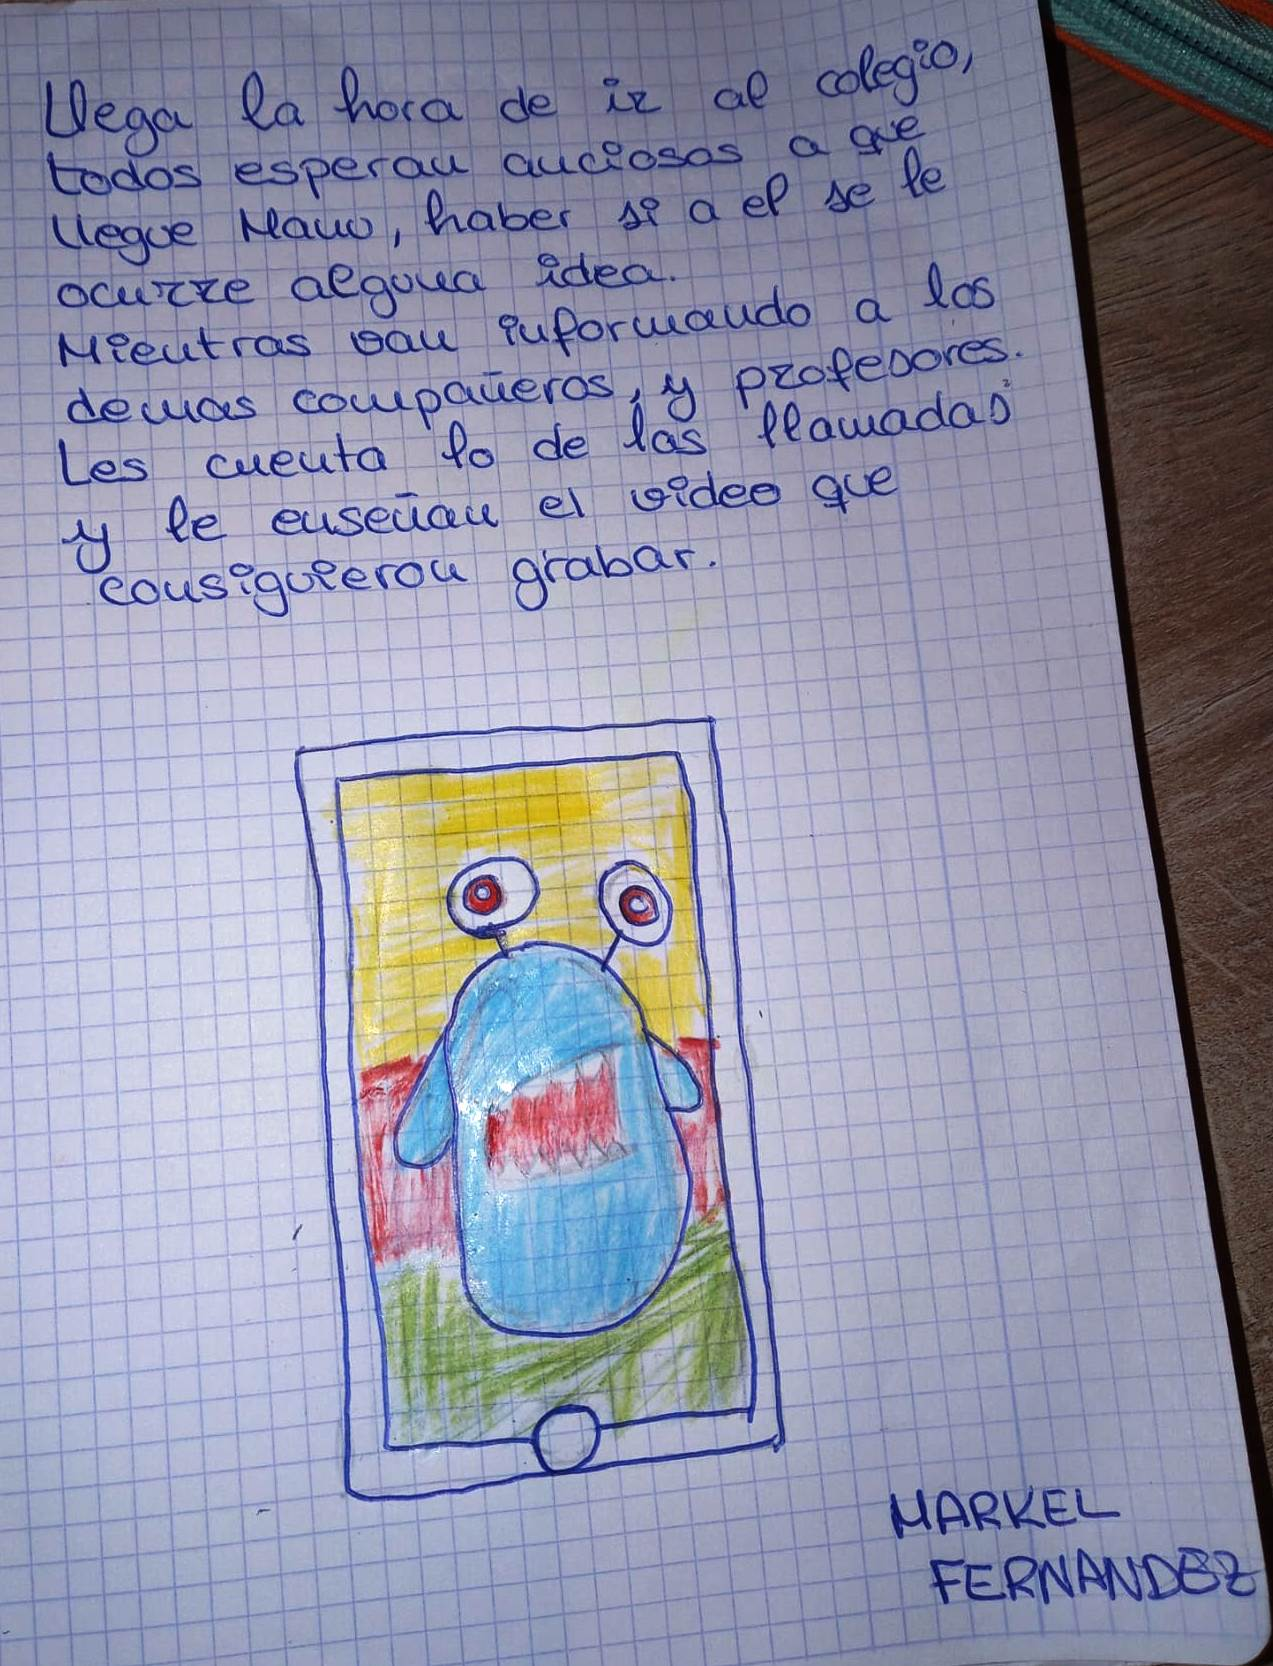 Llega la hora de ir al colegio,
todos esperan anciosos a que
llegue Manu, haber si a el se le
ocurre alguna idea.
Mientras van informando a los
demas compañeros, y profesores.
Les cuenta lo de las llamadas
y le enseñan el video que
consiguieron grabar.
MARKEL
FERNANDEZ